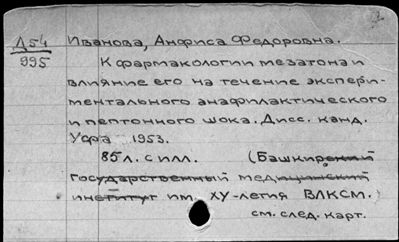 Л54
995
Иванова, Анфиса Федоровна.
К фармакологии мезатона и
влияние его на течение экспери-
ментального анафилактического
и пептонного шока. Дисс. канд.
Уфа 1953.
85 л. с илл. (Башкирский
государственный медицинский
институт им. XV-летия ВЛКСМ.)
см. след. карт.